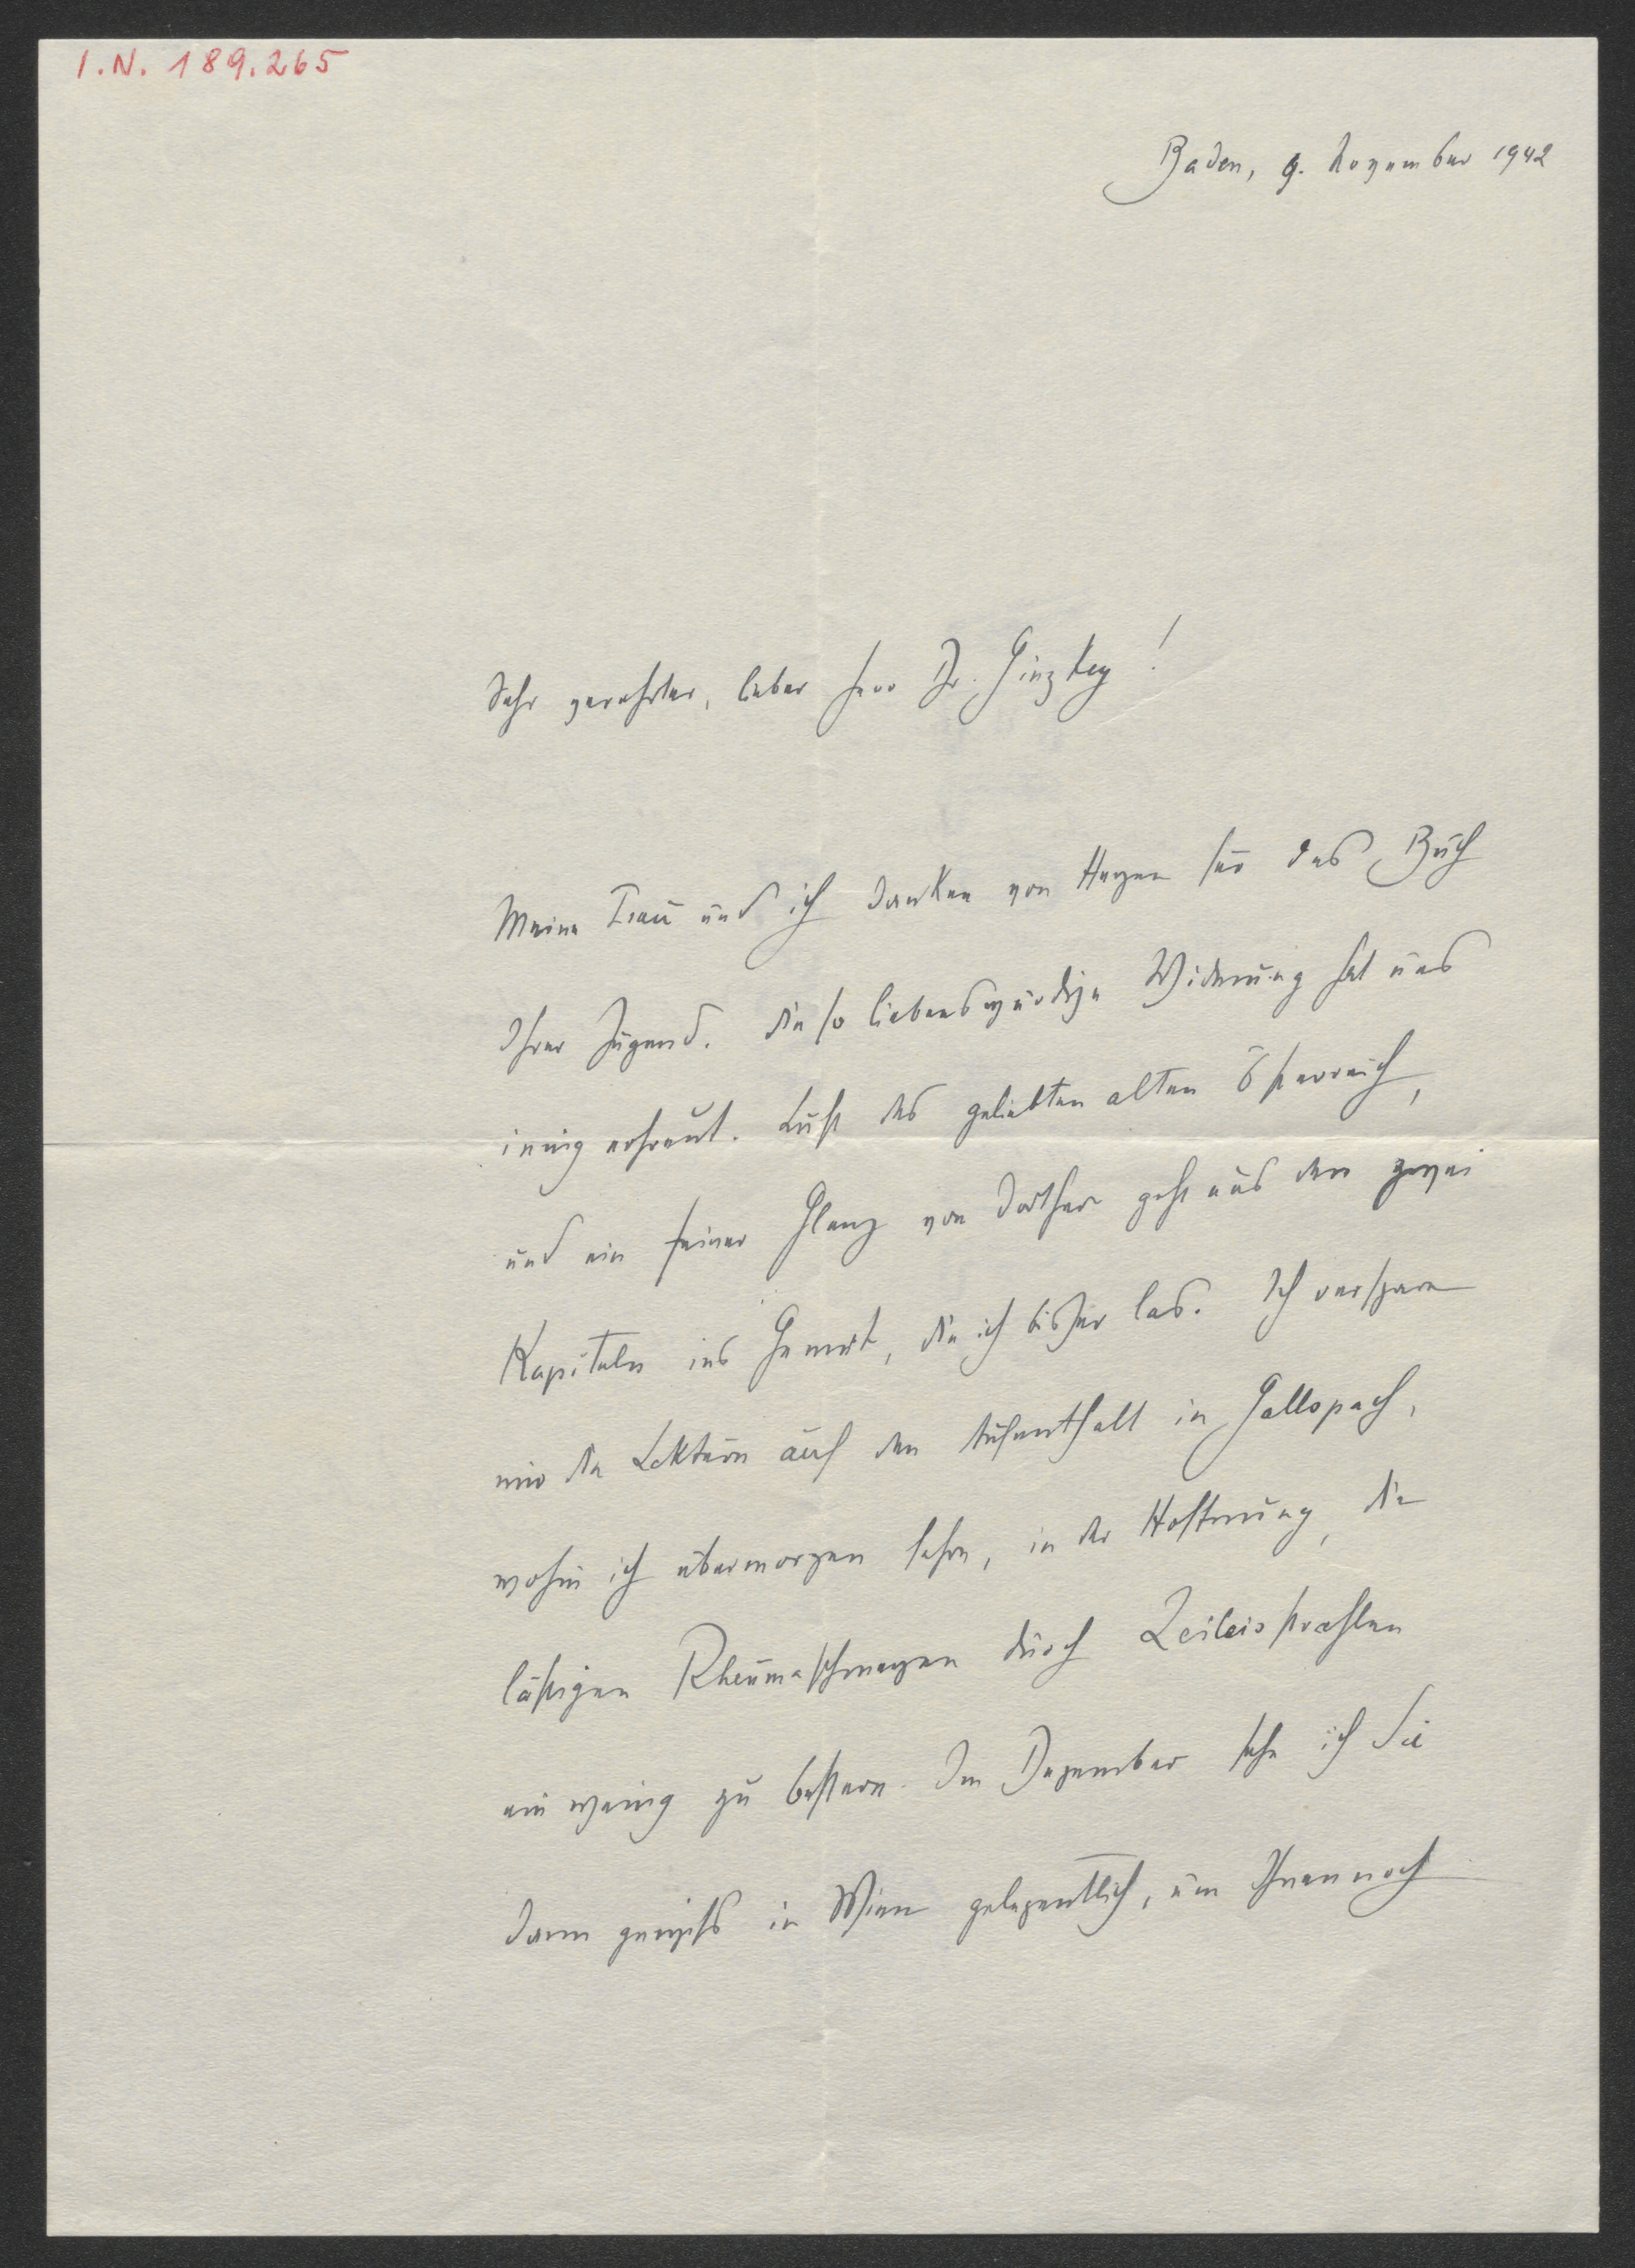 I.N. 189.265
Baden, 9. November 1942
Sehr verehrter, lieber Herr Dr. Ginzkey!
Meine Frau und ich danken von Herzen für das Buch
Ihrer Jugend. Die so liebenswürdige Widmung hat uns
innig erfreut. Luft des geliebten alten Österreich,
und ein feiner Glanz von dorther geht aus den zwei
Kapiteln ins Gemüt, die ich bisher las. Ich verspare
mir die Lektüre auf den Aufenthalt in Gallspach,
wohin ich übermorgen fahre, in der Hoffnung, die
lästigen Rheumaschmerzen durch Zeileisstrahlen
ein wenig zu bessern. Im Dezember sehe ich Sie
dann gewiss in Wien gelegentlich, um Ihnen noch